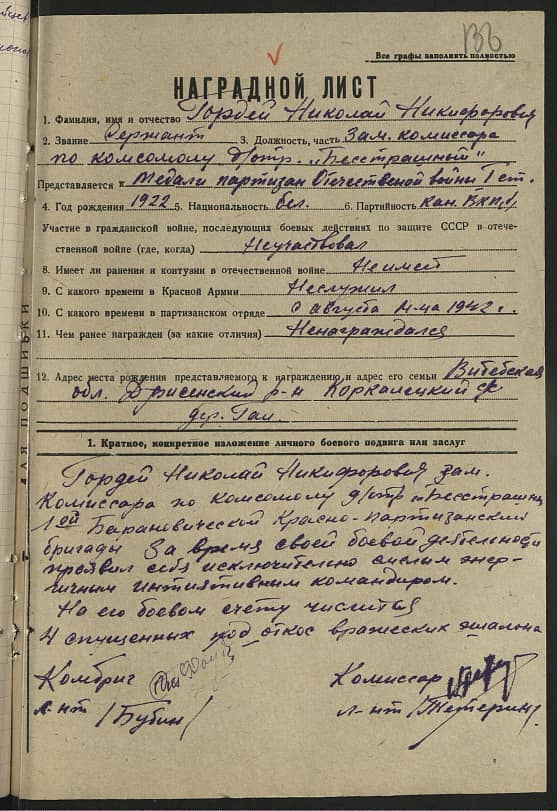 136
Все графы заполнить полностью
НАГРАДНОЙ ЛИСТ
1. Фамилия, имя и отчество Гордей Николай Никифорович
2. Звание Сержант 3. Должность, часть Зам. комиссара
по комсомолу п/отр. „Бесстрашный"
Представляется к медали партизан Отечественой войны I ст.
4. Год рождения 1922 5. Национальность бел. 6. Партийность кан. ВКП/б
Участие в гражданской войне, последующих боевых действиях по защите СССР в отече-
ственной войне (где, когда) Неучаствовал
8. Имеет ли ранения и контузии в отечественной войне Неимеет
9. С какого времени в Красной Армии Неслужил
10. С какого времени в партизанском отряде с августа м-ца 1942 г.
11. Чем ранее награжден (за какие отличия) Ненаграждался
12. Адрес места рождения представляемого к награждению и адрес его семьи Витебская
обл. Дрисенский р-н
дер.
ДЛЯ ПОДШИВКИ
1. Краткое, конкретное изложение личного боевого подвига или заслуг
Гордей Николай Никифорович зам.
комиссара по комсомолу п/отр „Бесстрашн
1ой Барановической Красно-партизанский
бригады За время своей боевой деятельности
проявил себя исключительно смелым энер-
гичным интиятивным командиром.
На его боевом счету числиться
4 спущенных под откос вражеских эшалона
Комбриг Комиссар
л-нт /Бубин/ л-нт /Тетерин/